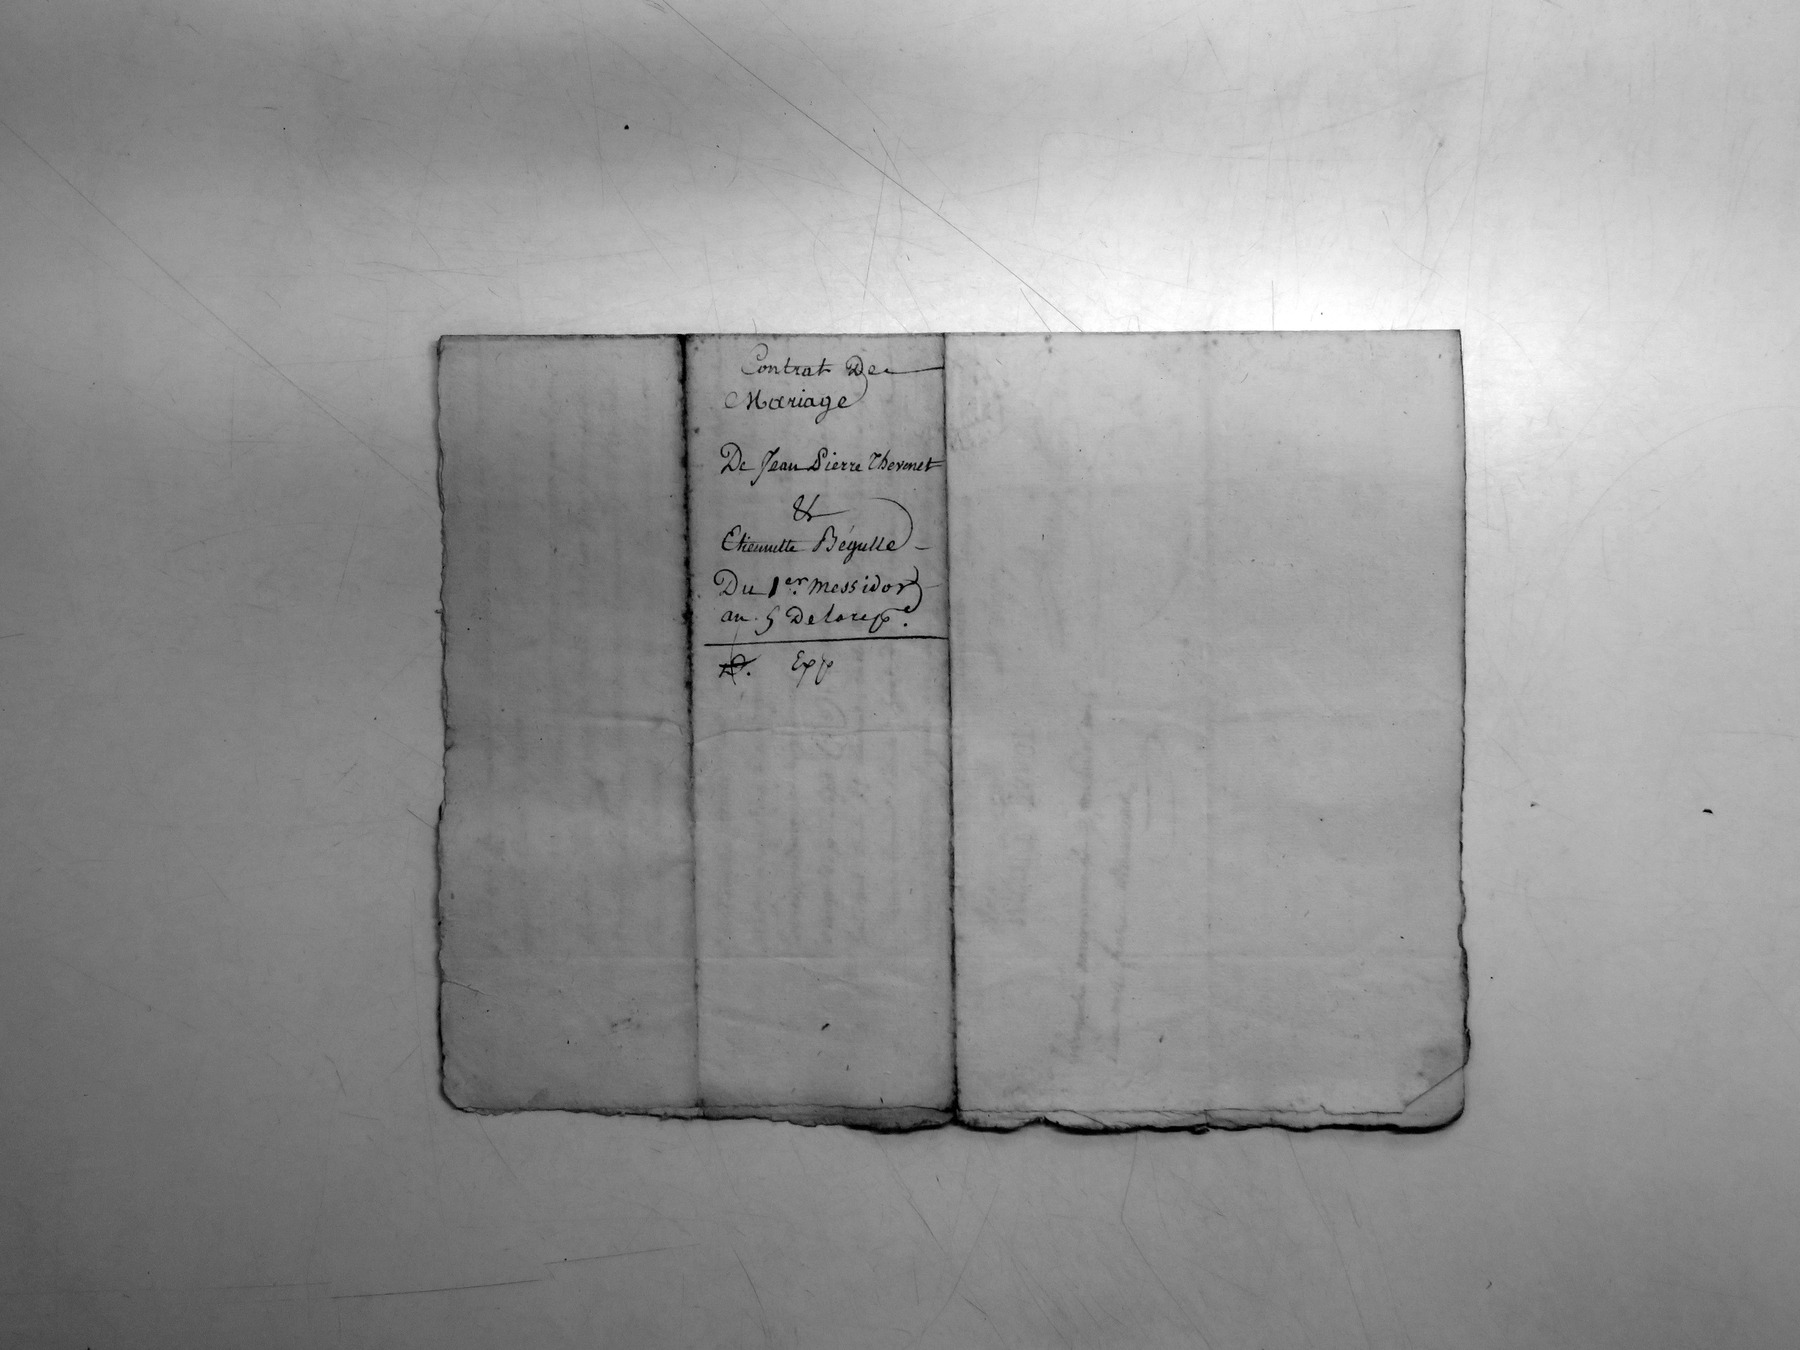 Contrat De
Mariage
De Jean Pierre Thevenet
&
Etiennette Bégulle
Du 1er. messidor
an 5 De la rep.e
Exp